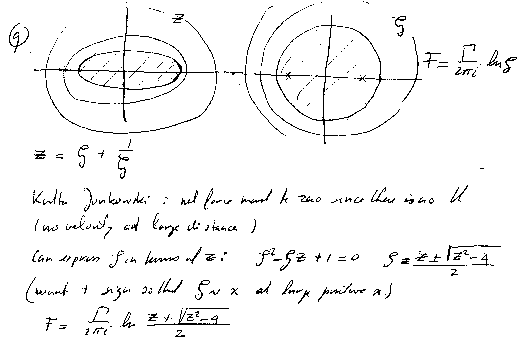 (9)
z
ζ
F = Γ/2πi ln ζ
z = ζ + 1/ζ
Kutta Joukowski : net force must be zero since there is no U
(no velocity at large distance)
Can express ζ in terms of z : ζ² - ζz + 1 = 0 ζ = (z ± √(z²-4))/2
(want + sign so that ζ ~ x at large positive x)
F = Γ/2πi ln (z + √(z²-4))/2